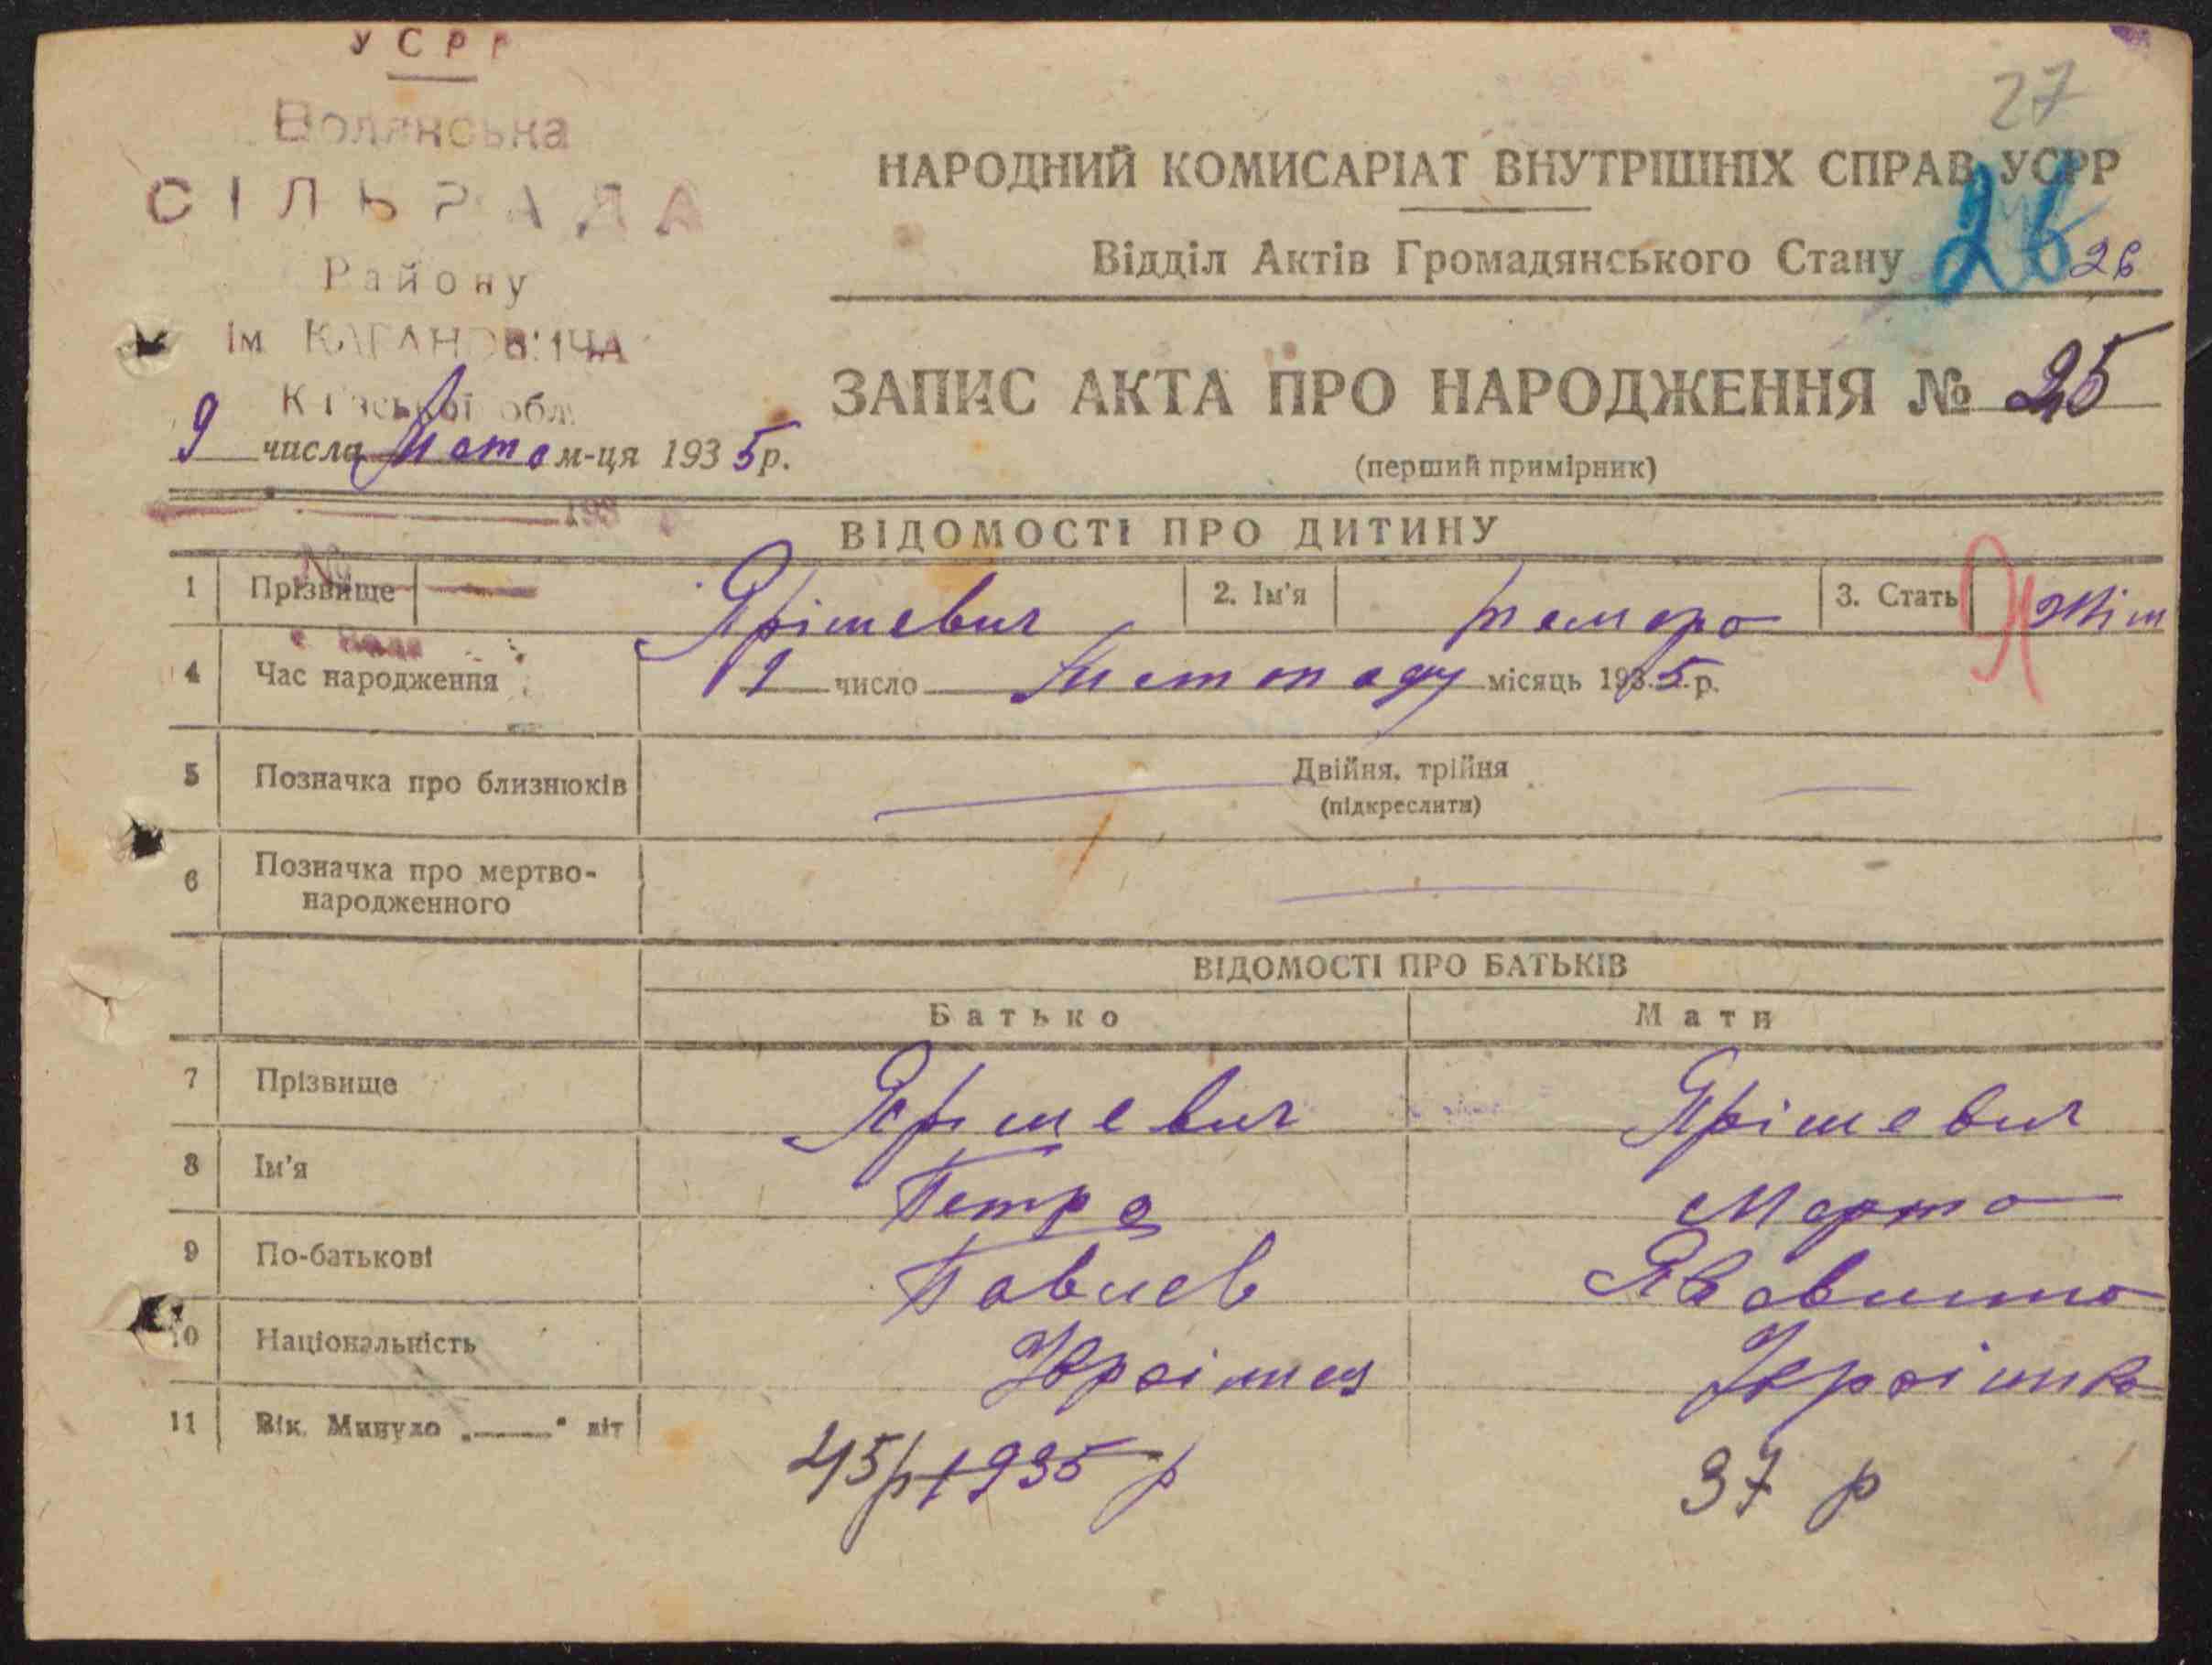 УСРР
27
Волянська
НАРОДНИЙ КОМИСАРІАТ ВНУТРІШНІХ СПРАВ УСРР
СІЛЬРАДА
26
Відділ Актів Громадянського Стану
26
Району
ім КАГАНОВИЧА
Київської обл.
ЗАПИС АКТА ПРО НАРОДЖЕННЯ № 25
9 числа м-ця 1935р.
(перший примірник)
193
ВІДОМОСТІ ПРО ДИТИНУ
№
1 Прізвище Ярішевич 2. Ім'я Тамара 3. Стать Жін
4 Час народження 9 число Листопаду місяць 1935.р.
5 Позначка про близнюків Двійня, трійня
(підкреслити)
6 Позначка про мертво-
народженного
ВІДОМОСТІ ПРО БАТЬКІВ
Батько Мати
7 Прізвище Ярішевич Ярішевич
8 Ім'я Петро Марта
9 По-батькові Павлов
10 Національність
11 Вік. Минуло „——“ літ 45р 1935 р 37 р